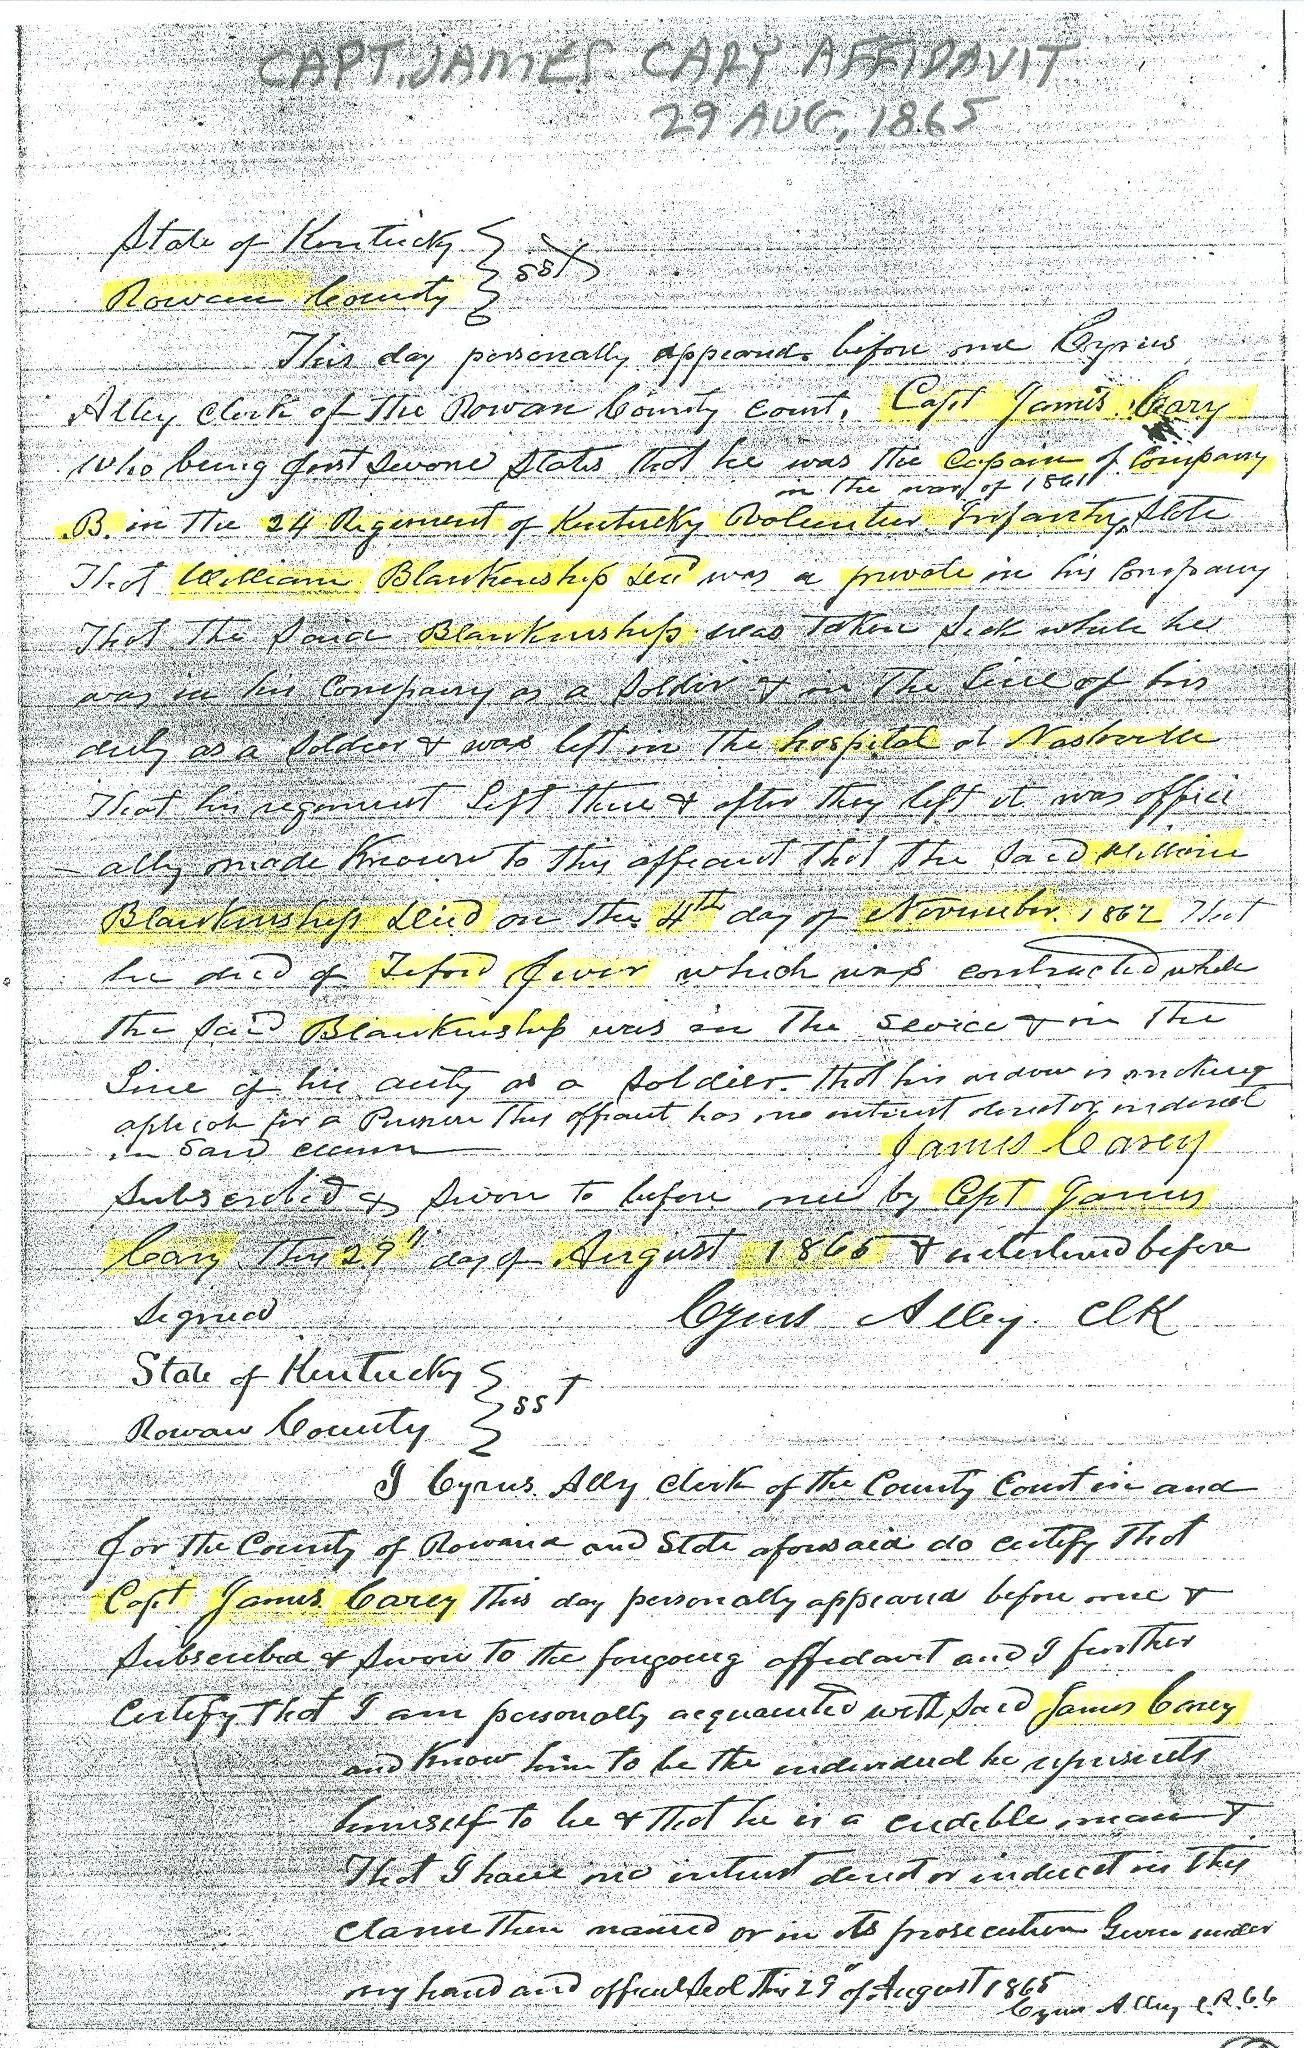 CAPT. JAMES CARY AFFIDAVIT
29 AUG, 1865
State of Kentucky
Rowan County } sst
This day personally appeard before me Cyrus
Alley clerk of the Rowan County court, Capt James Cary
who being first Swone States that he was the Capain of Company
in the war of 1861
B. in the 24 Regement of Kentucky Volunteer Infantry, State
That William Blankenship Decd was a private in his Company
That the said Blankenship was taken Sick while he
was in his Company as a Soldir & in the Line of his
duty as a Soldier & was left in the hospital at Nashville
That his regiment Left there & after they left it was offici
-ally made Known to this affiant that the Said William
Blankenship Decd on the 4th day of November 1862 That
he died of Tiford fever which was contracted while
the Said Blankenship was in the Sevice & in the
Line of his duty as a Soldier. that his widow is making
aplicatn for a Pension This affiant has no interest direct or inderect
in Said claim
James Carey
Subscribed & Swon to before me by Cpt James
Cary this 29" day of August 1865 & interlined before
Signed Cyrus Alley. Clk
State of Kentucky
Rowan County } sst
I Cyrus Ally Clerk of the County Court in and
for the County of Rowan and State aforsaid do certify that
Capt James Carey this day personally appeard before me &
Subscribed & Swon to the forgoing affidavit and I further
Certify that I am personally acquainted with Said James Carey
and know him to be the individual he represents
himself to be & that he is a credible man &
That I have no intrest direct or indirect in this
claim then named or in its prosecution Given under
my hand and official Seal this 29" of August 1865
Cyrus Alley C.R.C.C